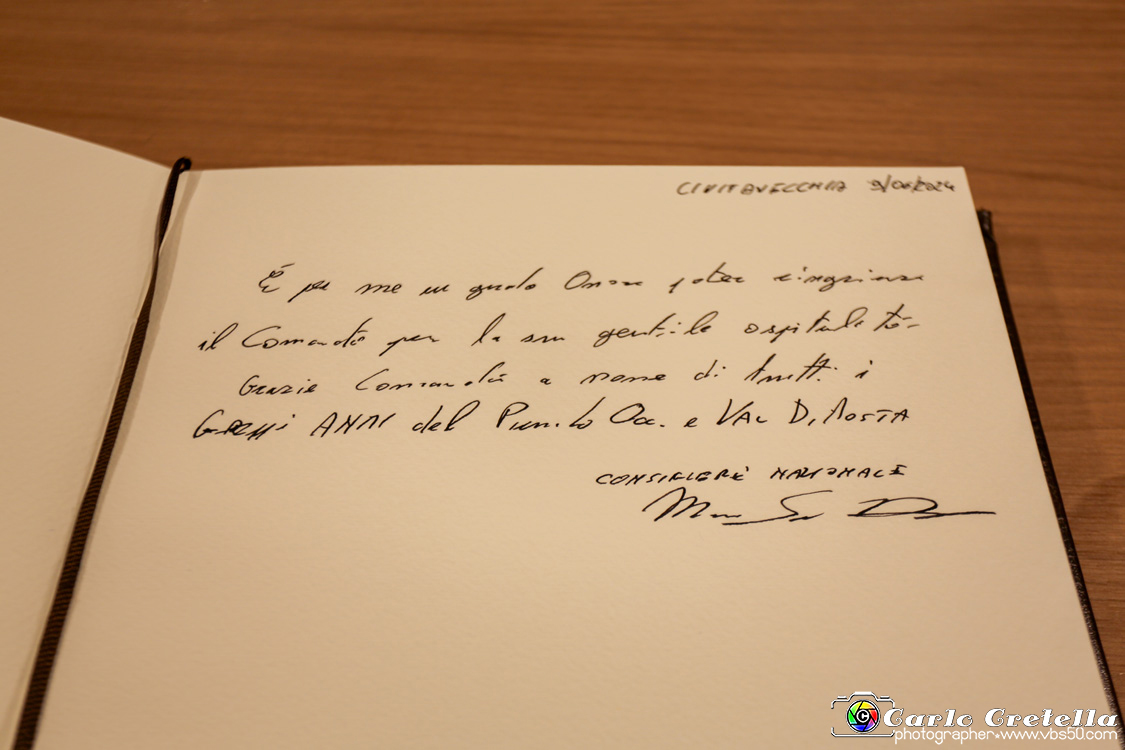 CIVITAVECCHIA 9/06/2024
È per me un grande Onore poter ringraziare
il Comando per la sua gentile ospitalità.
Grazie Comandà a nome di tutti i
ANMI del Piem.to Oc. e VAL D'AOSTA
CONSIGLIERE NAZIONALE
Carlo Cretella
photographer www.vbs50.com